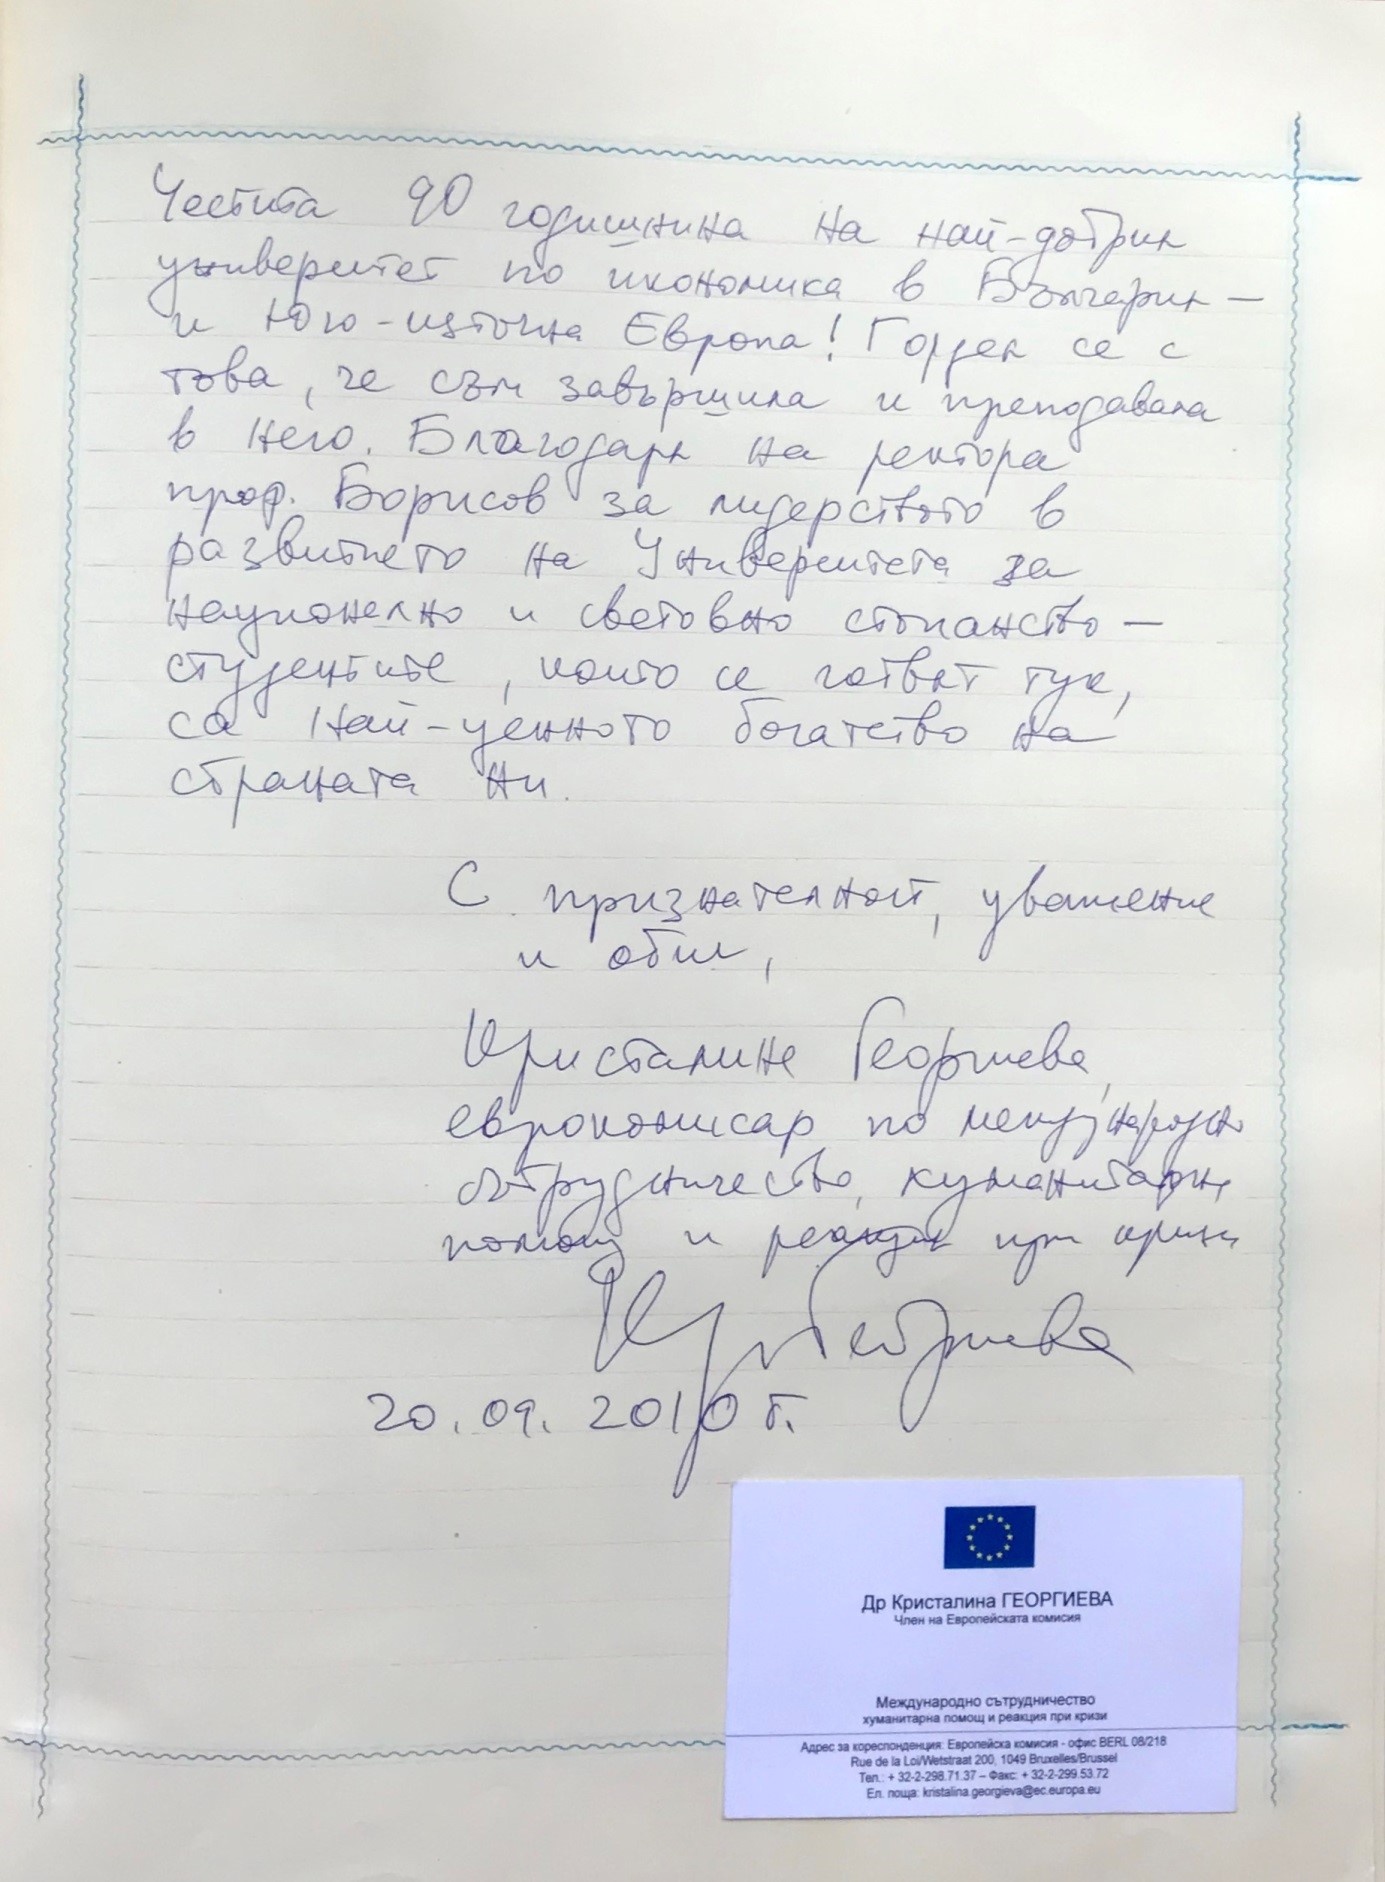 Честита 90 годишнина на най-добрия
университет по икономика в България –
и Юго-източна Европа! Гордея се с
това, че съм завършила и преподавала
в него. Благодаря на ректора
проф. Борисов за лидерството в
развитието на Университета за
национално и световно стопанство –
студентите, които се готвят тук,
са най-ценното богатство на
страната ни.
С признателност, уважение
и обич,
Кристалина Георгиева,
еврокомисар по международно
сътрудничество, хуманитарна
помощ и реакция при кризи
Кр Георгиева
20.09.2010 г.
Др Кристалина ГЕОРГИЕВА
Член на Европейската комисия
Международно сътрудничество
хуманитарна помощ и реакция при кризи
Адрес за кореспонденция: Европейска комисия - офис BERL 08/218
Rue de la Loi/Wetstraat 200, 1049 Bruxelles/Brussel
Тел.: + 32-2-298.71.37 – Факс: + 32-2-299.53.72
Ел. поща: kristalina.georgieva@ec.europa.eu